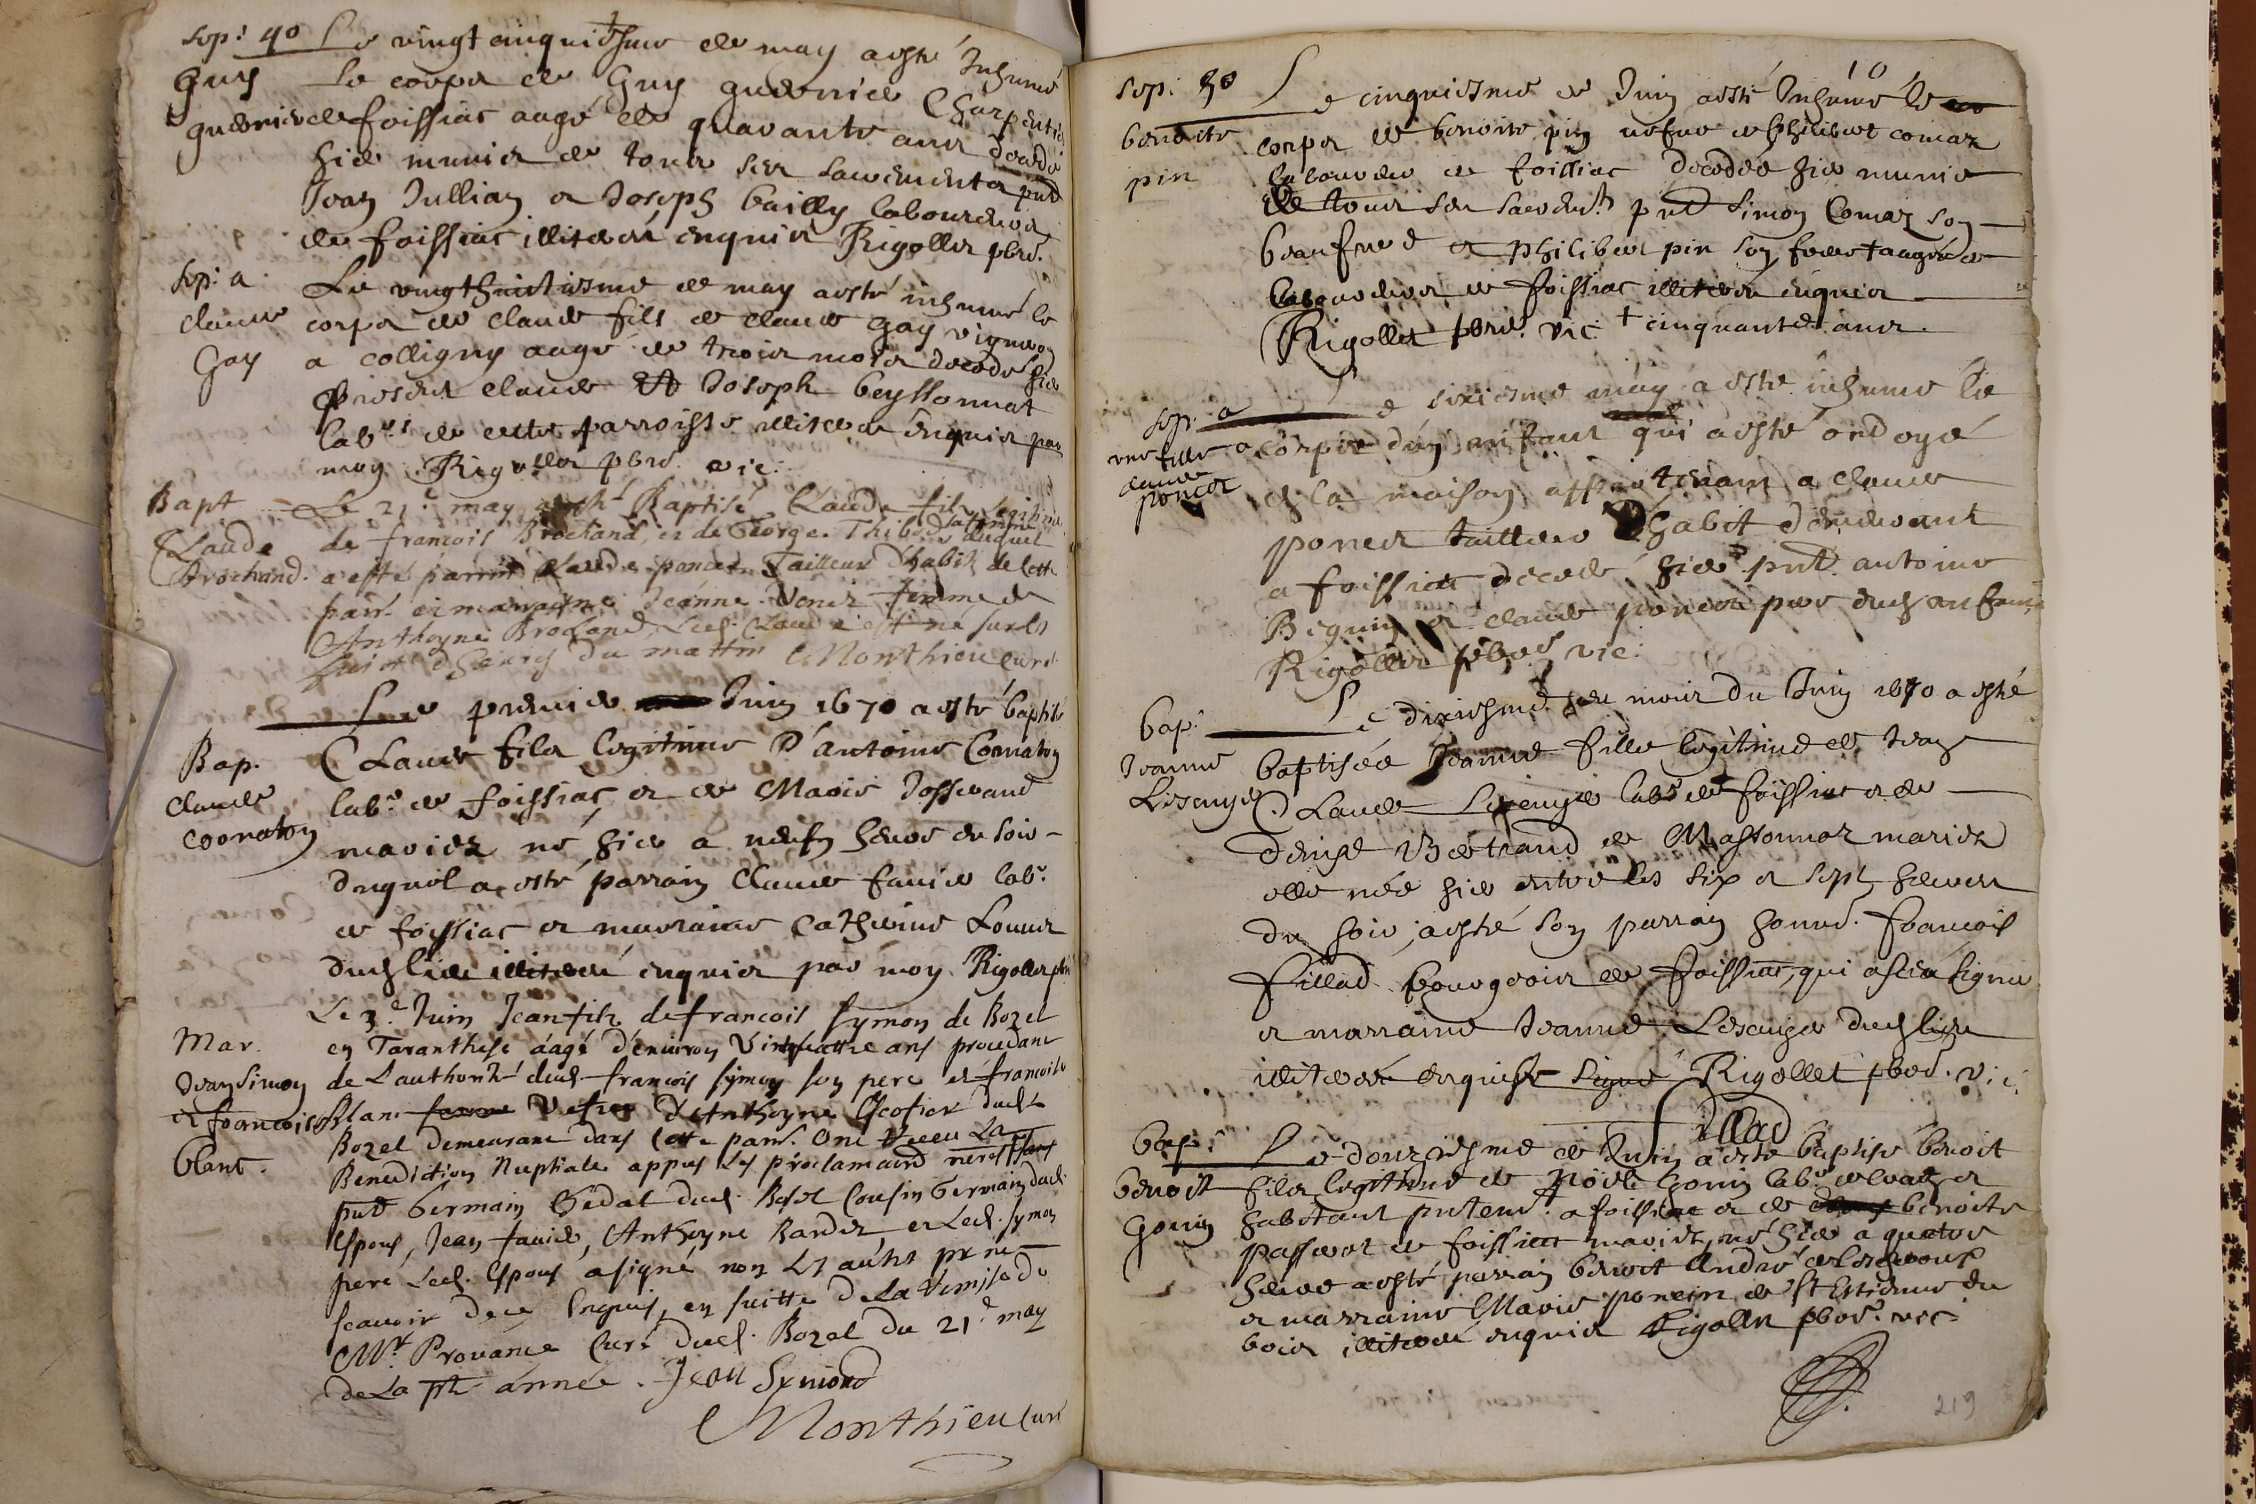 Sep: 40 Le vingt cinquiesme de may a esté Inhumé
Guy le corps de Guy guernier Charpentier
guernier de foissiac aagé de quarante ans decedé
hier munier de tous ses sacrements pnt
Jean Jullian et Joseph bailly laboureurs
de foissiac illiteré enquis Rigollet pbre.
Sep: a Le vingthuictiesme de may a esté inhumé le
claude corps de claude fils de claude gay vigneron
Gay a colligny aagé de trois mois decedé hier
presens claude et Joseph beyssonnat
labrs de cette parroisse illiteré enquis par
moy Rigollet pbre vic:
Bapt Le 21e may a esté Baptisé Claude fils legitime
Claude de francois Brochand, et de George Thibod sa femme duquel
Brochand. a esté parrin Claude poncet Tailleur Dhabitz de cette
parr. et marrayne Jeanne femme de
Anthoyne Brochand, Led. Claude est né sur les
huict heures du mattin Monthieu curé
Le premier Juin 1670 a esté baptisé
Bap. Claude fils legitime D'antoine Cornaton
claude labr de foissiac et de Marie Josserand
coornaton mariez né hier a neufz heures du soir
duquel a esté parrain Claude favier labr.
de foissiac et marraine Catherine
dud lieu illiteré enquis par moy Rigollet pbr
Le 3e Juin Jean filz de francois Symon de Bozel
Mar. en Taranthese aagé d'environ Vintquattre ans procedant
Jean Simon de L'authorité dud. francois Symon son pere et francoise
et francoise Blanc femme Vefve d'Anthoyne Escofier dud.
blanc. Bozel demeurant dans cette parr. Ont receu La
Benediction Nuptiale appres Les proclamaons neress faites
pnt Germain Gedat dud. Bosel Cousin Germain dud.
Espoux, Jean favier, Anthoyne Bardet, et Led. Symon
pere Led. Espoux a signé non Les autres pr ne
scavoir de ce Enquis, en suitte de La remise de
Mr Provance Curé dud. Bozel du 21e may
de La pnt année. Jean Symond
Monthieu curé
10
Sep: 50 Le cinquiesme de Juin a esté Inhumé le
benoite corps de benoite pin vefve de philibert comaz
pin laboureur de foissiac decedée hier munie
de tous ses sacremts. pnt Simon Comaz son
beaufrere et philibert pin son frere + aagée de
laboureurs de foissiac illiteré enquis
Rigollet pbre. vic + cinquante ans.
Sep: a Le sixiesme may a esté inhumé le
une fille a corps d'un enfant qui a esté ondoyé
claude poncet en la maison appartenant a claude
poncet tailleur D'habit demeurant
a foissiat decedé hier pnt antoine
Beguin et claude poncet pere dud enfant
Rigollet pbre vic:
bap: Le dixiesme du mois du Juin 1670 a esté
Jeanne baptisée Jeanne fille legitime de Jean
Claude labr de foissiac et de
denise Bertrand de Massonnaz mariez
elle née hier entre les six et sept heures
du soir, a esté son parrain honne. francois
fillad bourgeois de foissiac, qui a signé
et marraine Jeanne dud lieu
illiteré enquise signé Rigollet pbre. vic
fillad
bap: Le douziesme de Juin a esté baptisé benoit
benoit fils legitime de Noël gonin labr et
Gonin habitant a foissiac et de benoite
passerat de foissiat mariez, né hier a quatre
heures a esté parrain benoit André
et marraine Marie poncin de St Estienne du
bois illiteré enquis Rigollet pbre. vic
219